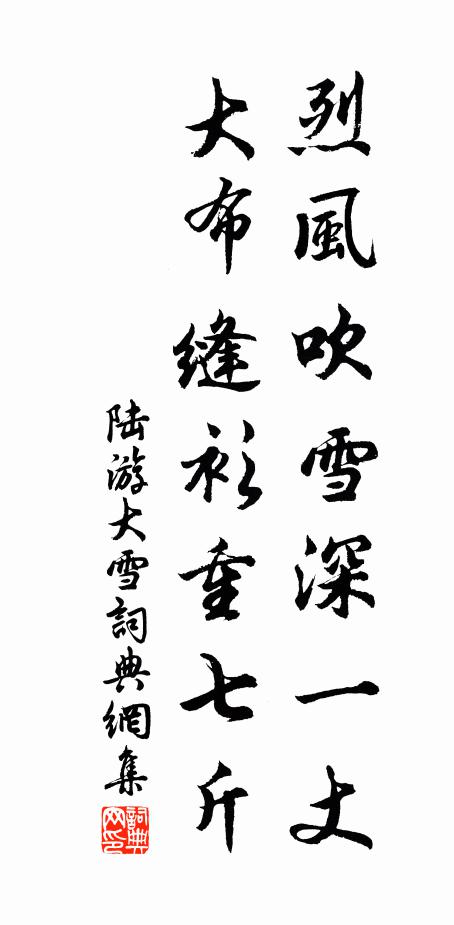 烈風吹雪深一丈
大布縫衫重七斤
陸游大雪詞典網集
詞典网印